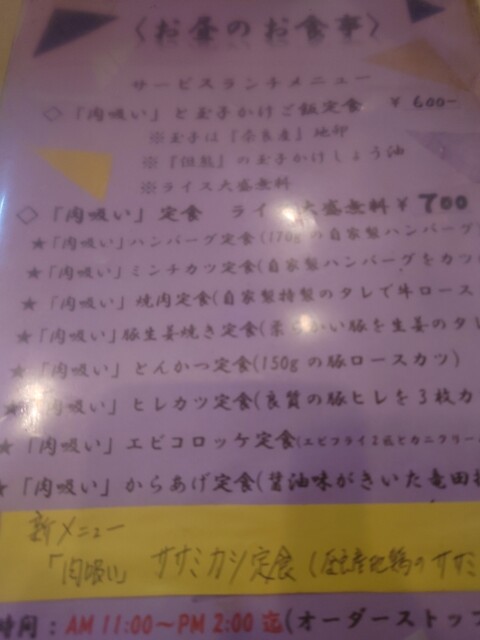 〈お昼のお食事〉
サービスランチメニュー
◇「肉吸い」と玉子かけご飯定食 ￥600-
※玉子は『奈良産』地卵
※『但熊』の玉子かけしょう油
※ライス大盛無料
◇「肉吸い」定食 ライス大盛無料￥700
★「肉吸い」ハンバーグ定食(170gの自家製ハンバーグ
★「肉吸い」ミンチカツ定食(自家製ハンバーグをカツ
★「肉吸い」焼肉定食(自家製特製のタレで牛ロース
★「肉吸い」豚生姜焼き定食(柔らかい豚を生姜のタレ
★「肉吸い」とんかつ定食(150gの豚ロースカツ)
★「肉吸い」ヒレカツ定食(良質の豚ヒレを3枚カ
★「肉吸い」エビコロッケ定食(エビフライ2匹とカニクリー
★「肉吸い」からあげ定食(醤油味がきいた竜田揚
新メニュー
「肉吸い」ササミカツ定食(産地鶏のササミ
時間：AM 11:00～PM 2:00 迄(オーダーストップ